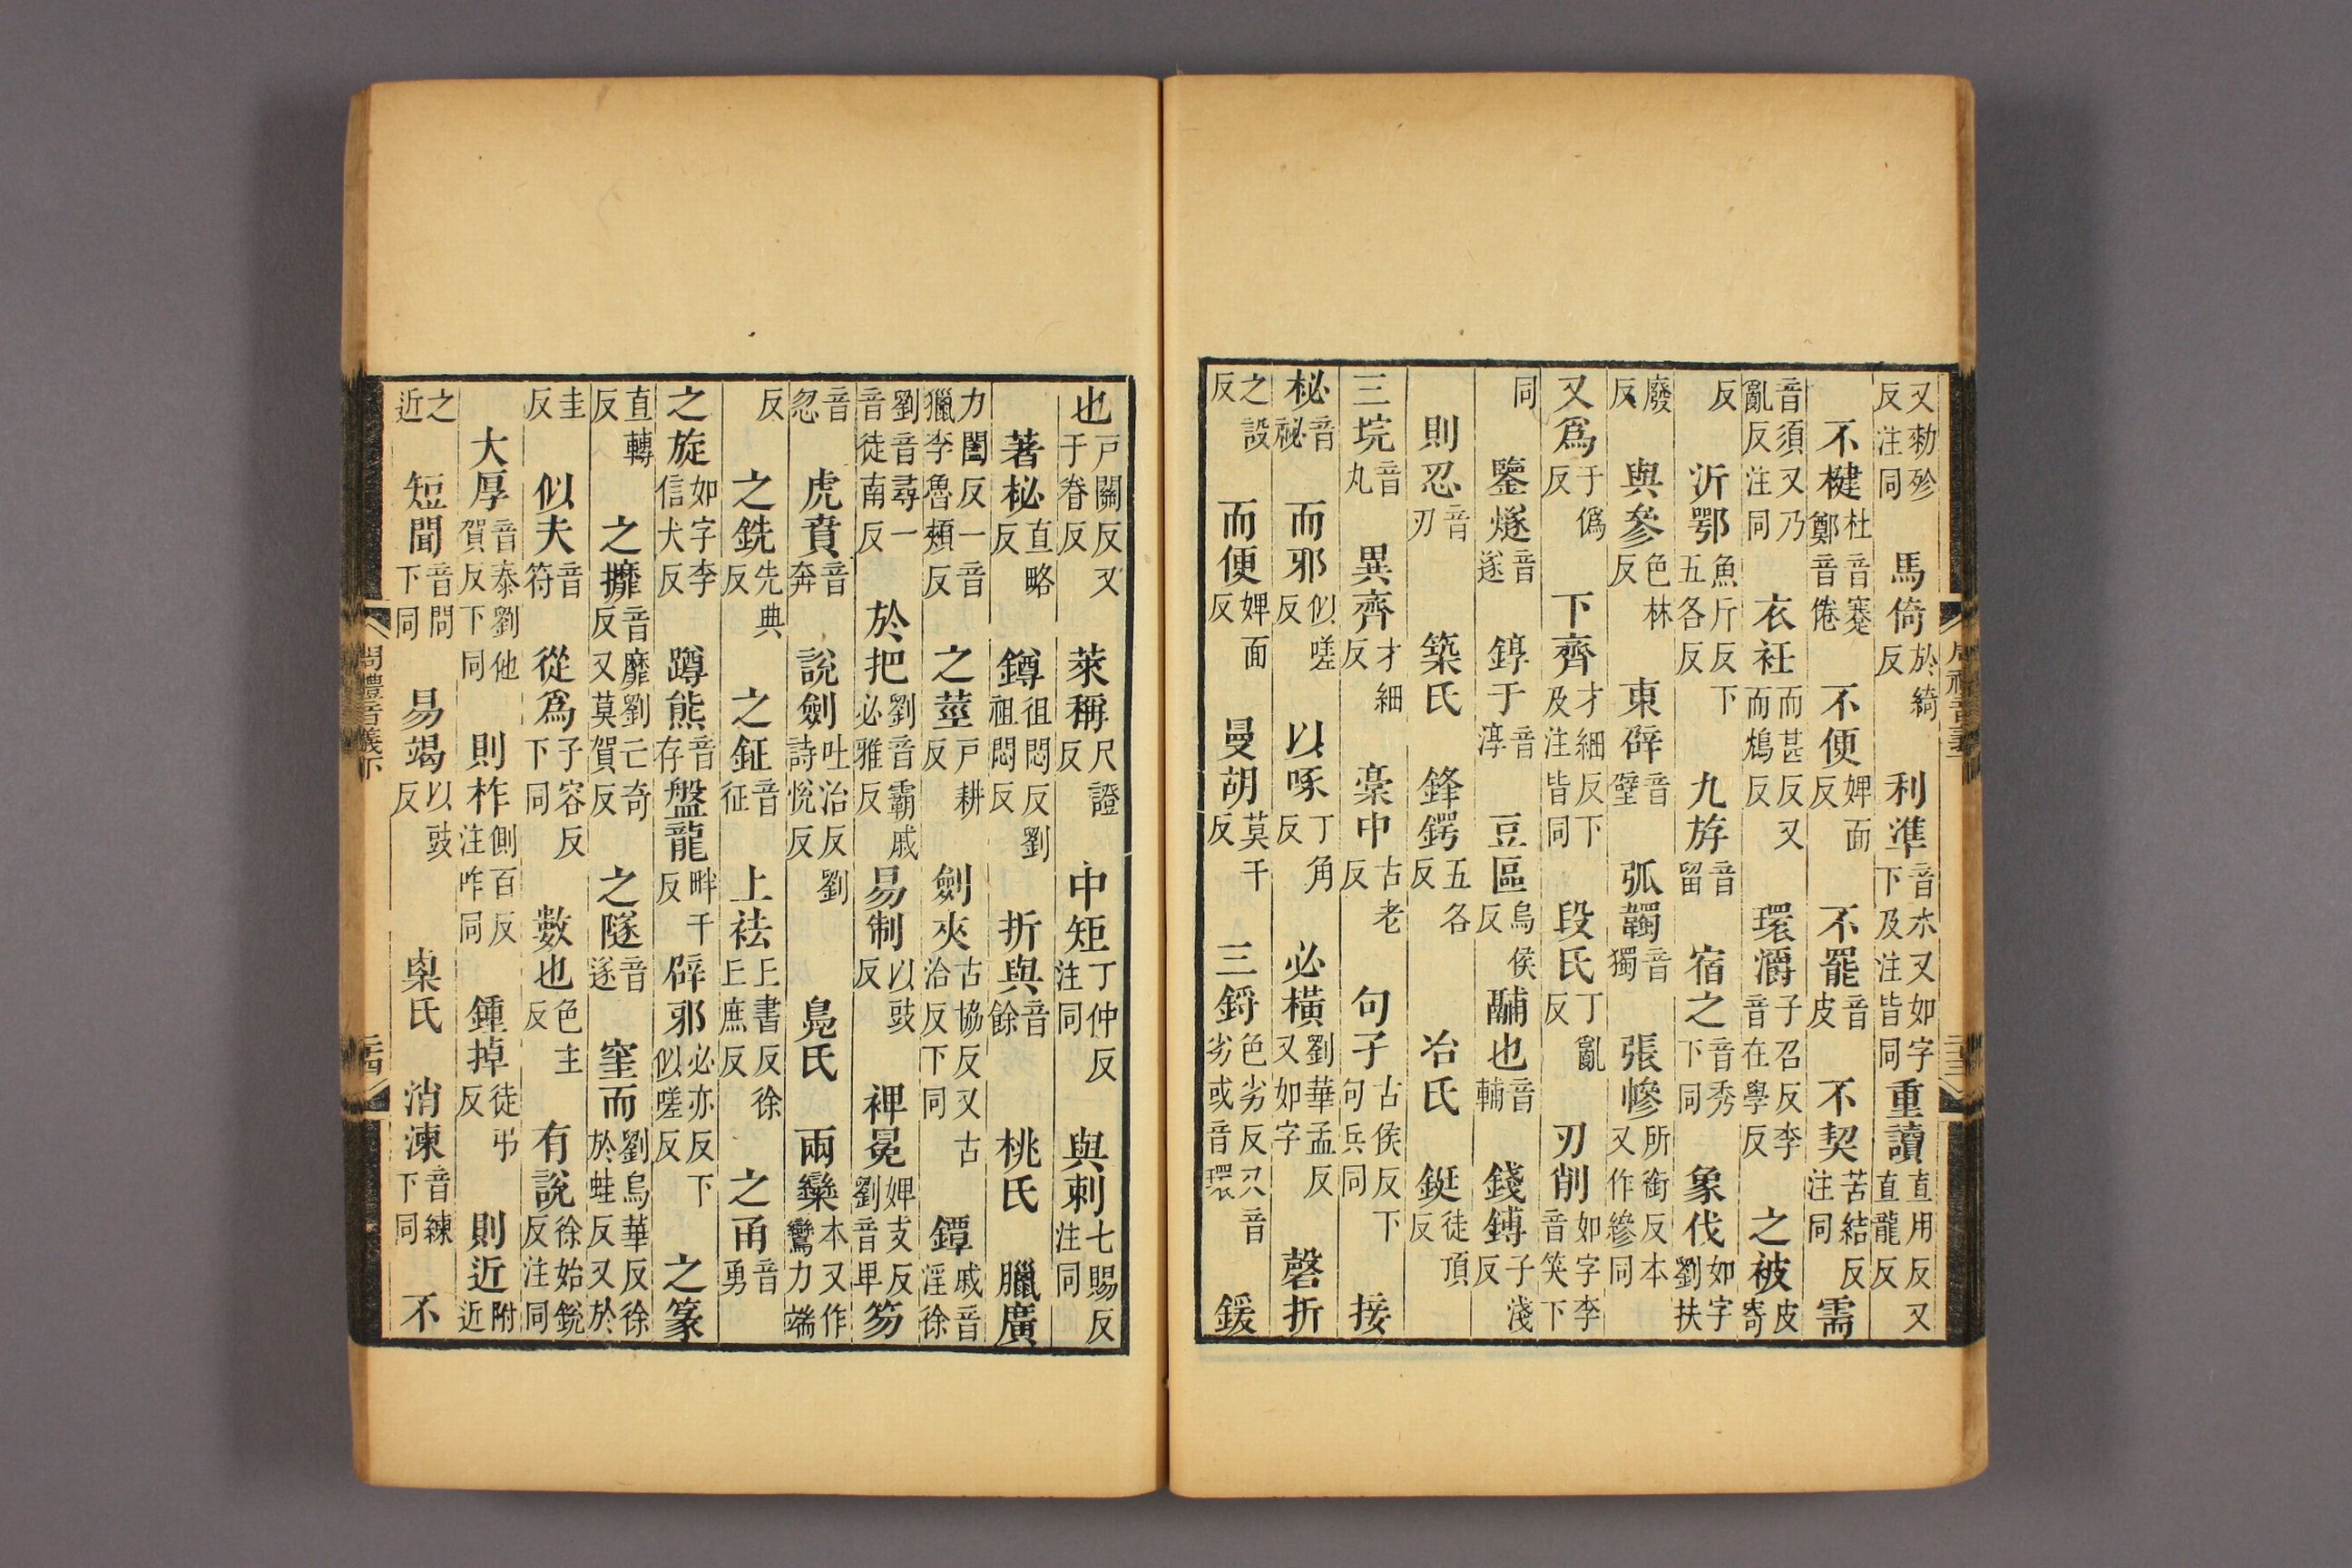 又勑殄反注同 馬倚於綺反 利準音水又如字下及注皆同 重讀直用反又直龍反
不楗杜音蹇鄭音倦 不便婢面反 不罷音皮 不契苦結反注同 需
音須又乃亂反注同 衣衽而甚反又而鴆反 環灂子召反李音在學反 之被皮寄
反 沂鄂魚斤反下五各反 九斿音留 宿之音秀下同 象伐如字劉扶
廢反 與參色林反 東辟音壁 弧韣音獨 張幓所銜反本又作縿同
又爲于僞反 下齊才細反下及注皆同 段氏丁亂反 刃削如字李音笑下
同 鑒燧音遂 錞于音淳 豆區烏侯反 鬴也音輔 錢鎛子淺反
則忍音刃 築氏 鋒鍔五各反 冶氏 鋌徒頂反
三垸音丸 異齊才細反 稾中古老反 句子古侯反下句兵同 接
柲音祕 而邪似嗟反 以啄丁角反 必橫劉華孟反又如字 磬折
之設反 而便婢面反 曼胡莫干反 三鋝色劣反又音劣或音環 鍰
也戶關反又于眷反 萊稱尺證反 中矩丁仲反注同 與刺七賜反注同
著柲直略反 鐏徂悶反劉祖悶反 折與音餘 桃氏 臘廣
力闔反一音獵李魯頰反 之莖戶耕反 劍夾古協反又古洽反下同 鐔戚音淫徐
劉音尋一音徒南反 於把劉音霸戚必雅反 易制以豉反 裨冕婢支反劉音卑 笏
音忽 虎賁音奔 說劍吐治反劉詩悅反 鳧氏 兩欒本又作鸞力端
反 之銑先典反 之鉦音征 上袪上書反徐上庶反 之甬音勇
之旋如字李信犬反 蹲熊音存 盤龍畔干反 辟邪必亦反下似嗟反 之篆
直轉反 之攠音靡劉亡奇反又莫賀反 之隧音遂 窐而劉烏華反徐於蛙反又於
圭反 似夫音符 從爲子容反下同 數也色主反 有說徐始銳反注同
大厚音泰劉他賀反下同 則柞側百反注咋同 鍾掉徒弔反 則近附近
之近 短聞音問下同 易竭以豉反 㮚氏 消湅音練下同 不
周禮音義下